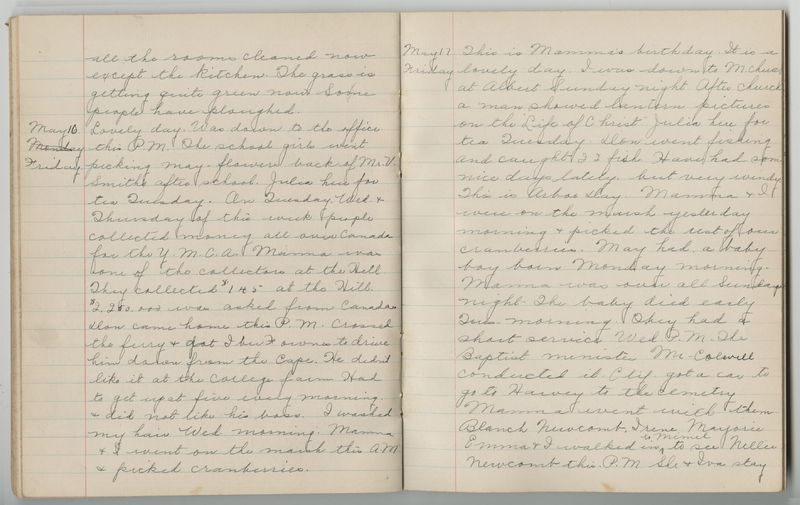 all the rooms cleaned now
except the kitchen. The grass is
getting quite green now. Some
people have ploughed.
May 10. Lovely day. Was down to the office
Monday this P.M. The school girls went
Friday picking may-flowers back of Mr. V.
Smiths after school. Julia here for
tea Tuesday. On Tuesday, Wed. &
Thursday of this week people
collected money all over Canada
for the Y.M.C.A. Mamma was
one of the collectors at the Hill
They collected $145 at the Hill.
$2,250.000 was asked from Canada
Don came home this P.M. Crossed
the ferry & got to drive
him down from the Cape. He didn't
like it at the College farm. Had
to get up at five every morning.
& did not like his boss. I washed
my hair Wed. morning. Mamma
& I went on the marsh this A.M
& picked cranberries.
May 17 This is Mamma's birthday. It is a
Friday lovely day. I was down to M. Church
at Albert Sunday night. After church
a man showed lantern pictures
on the Life of Christ. Julia here for
tea Tuesday. Don went fishing
and caught 22 fish. Have had some
nice days lately. but very windy
This is Arbor Day. Mamma & I
were on the marsh yesterday
morning & picked the rest of our
cranberries. May had a baby
boy born Monday morning.
Mamma was over all Sunday
night. The baby died early
Tues. morning. They had a
short service Wed P.M. The
Baptist minister Mr. Colwell
conducted it. Clif. got a car to
go to Harvey to the cemetry
Mamma went with them.
Blanch Newcomb, Irene, Marjorie
Emma & I walked in to see Nellie
Newcomb this P.M. She & Iva stay